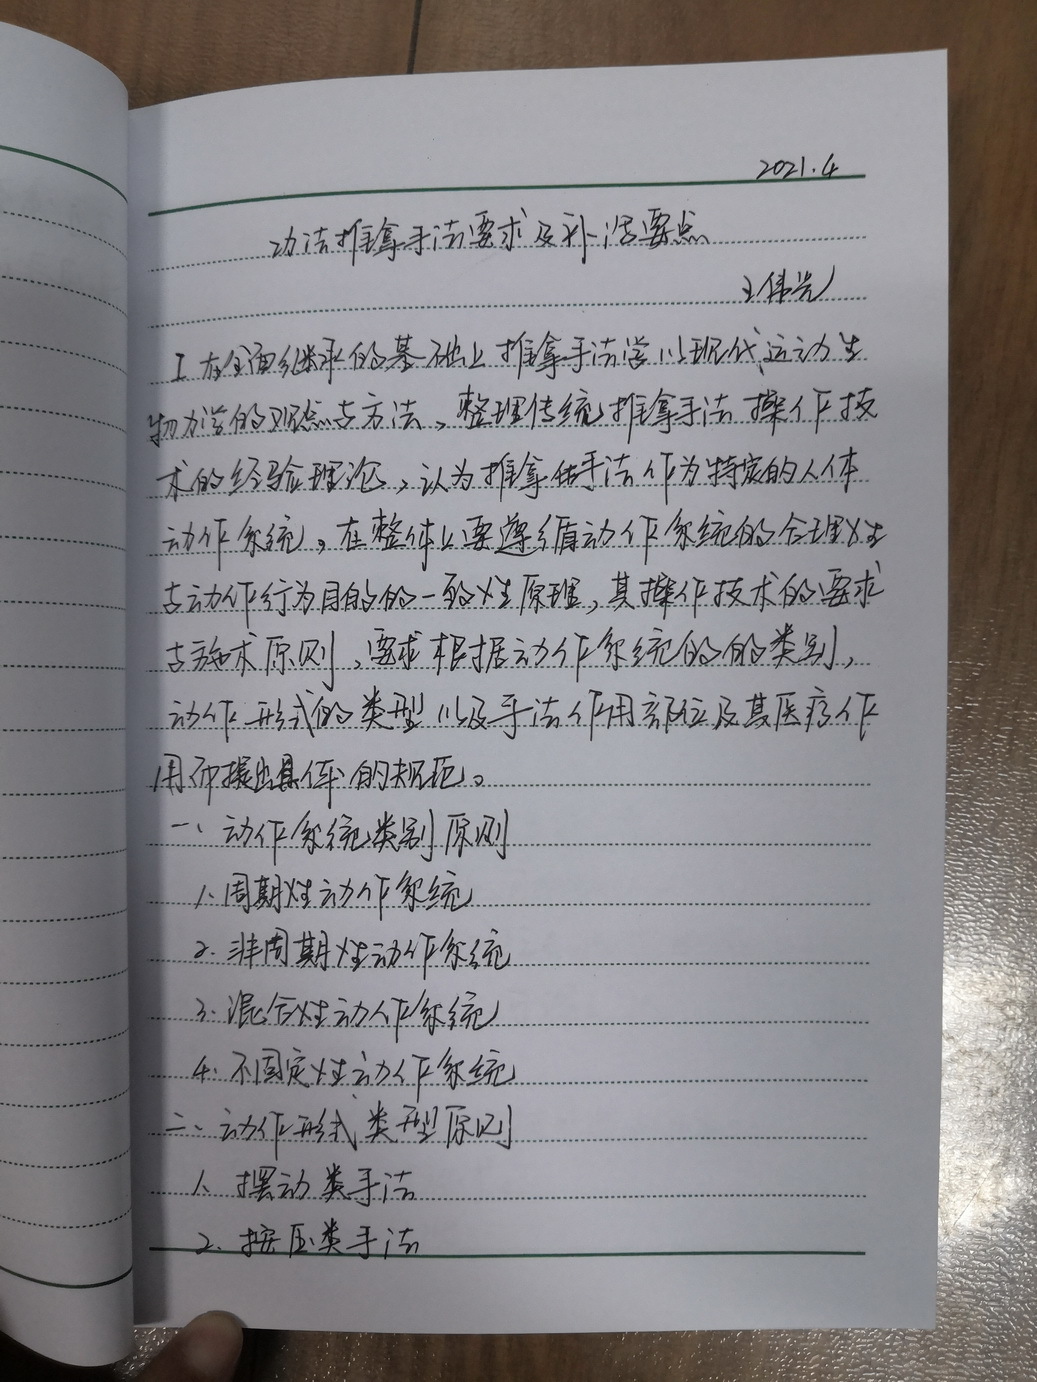 2021.4
功法推拿手法要求及补泻要点
王伟光
I 在全面继承的基础上推拿手法学以现代运动生
物力学的观点与方法，整理传统推拿手法操作技
术的经验理论，认为推拿手法作为特定的人体
动作系统。在整体上要遵循动作系统的合理性
与动作行为目的的一致性原理，其操作技术的要求
与施术原则，要求根据动作系统的的类别，
动作形式的类型以及手法作用部位及其医疗作
用而提出具体的规范。
一、动作系统类别原则
1、周期性动作系统
2、非周期性动作系统
3、混合性动作系统
4、不固定性动作系统
二、动作形式类型原则
1、摆动类手法
2、按压类手法